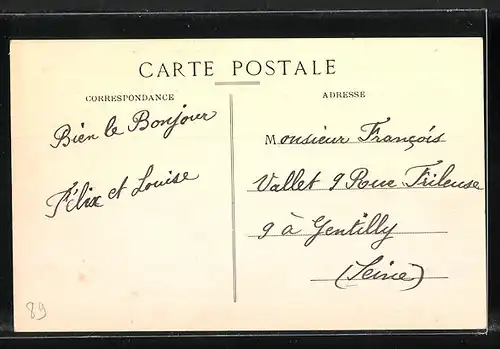 CARTE POSTALE
CORRESPONDANCE
Bien le Bonjour
Félix et Louise
ADRESSE
Monsieur François
Vallet 9 Rue Frileuse
9 à Gentilly
(Seine)
89